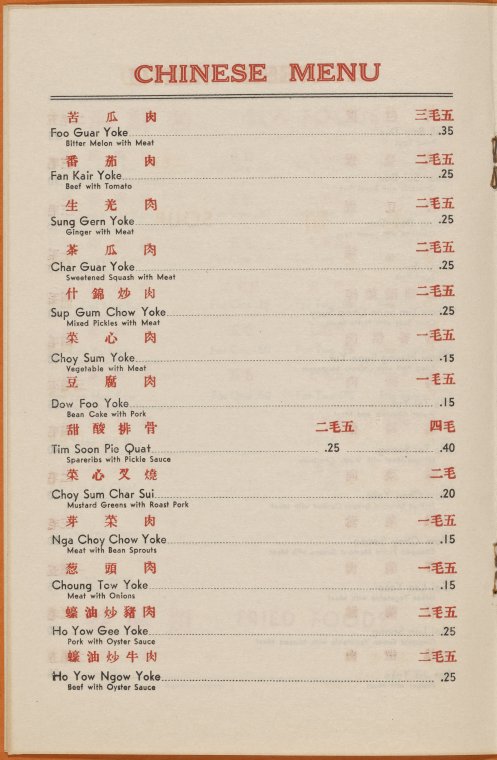 CHINESE MENU
苦瓜肉 三毛五
Foo Guar Yoke .35
Bitter Melon with Meat
番茄肉 二毛五
Fan Kair Yoke .25
Beef with Tomato
生羌肉 二毛五
Sung Gern Yoke .25
Ginger with Meat
茶瓜肉 二毛五
Char Guar Yoke .25
Sweetened Squash with Meat
什錦炒肉 二毛五
Sup Gum Chow Yoke .25
Mixed Pickles with Meat
菜心肉 一毛五
Choy Sum Yoke .15
Vegetable with Meat
豆腐肉 一毛五
Dow Foo Yoke .15
Bean Cake with Pork
甜酸排骨 二毛五 四毛
Tim Soon Pie Quat .25 .40
Spareribs with Pickle Sauce
菜心叉燒 二毛
Choy Sum Char Sui .20
Mustard Greens with Roast Pork
芽菜肉 一毛五
Nga Choy Chow Yoke .15
Meat with Bean Sprouts
葱頭肉 一毛五
Choung Tow Yoke .15
Meat with Onions
蠔油炒豬肉 二毛五
Ho Yow Gee Yoke .25
Pork with Oyster Sauce
蠔油炒牛肉 二毛五
Ho Yow Ngow Yoke .25
Beef with Oyster Sauce